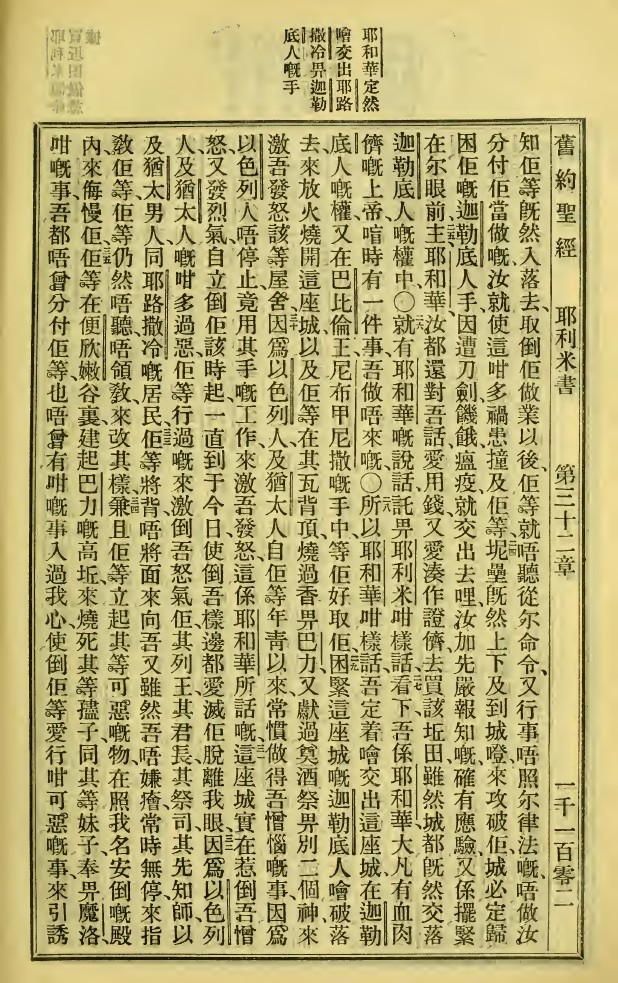 耶和華定然
噲交出耶路
撒冷畀迦勒
底人嘅手
舊約聖經　耶利米書　第三十二章　一千一百零二
知佢等旣然入落去、取倒佢做業以後、佢等就唔聽從尔命令、又行事唔照尔律法嘅、唔做汝
分付佢當做嘅、汝就使這咁多禍患撞及佢等、坭壘旣然上下及到城噔、來攻破佢、城必定歸
困佢嘅迦勒底人手、因遭刀劍饑餓瘟疫、就交出去哩、汝加先嚴報知嘅、確有應驗、又係擺緊
在尔眼前、主耶和華、汝都還對吾話、愛用錢、又愛湊作證儕、去買該坵田、雖然城都旣然交落
迦勒底人嘅權中、〇就有耶和華嘅說話、託畀耶利米咁樣話、看下、吾係耶和華、大凡有血肉
儕嘅上帝、喑時有一件事、吾做唔來嘅、〇所以耶和華咁樣話、吾定着噲交出這座城、在迦勒
底人嘅權、又在巴比倫王尼布甲尼撒嘅手中、等佢好取佢、困緊這座城嘅迦勒底人、噲破落
去、來放火燒開這座城、以及佢等在其瓦背頂、燒過香畀巴力、又獻過奠酒祭畀別二個神、來
激吾發怒該等屋舍、因爲以色列人及猶太人、自佢等年靑以來、常慣做得吾憎惱嘅事、因爲
以色列人、唔停止竟用其手嘅工作、來激吾發怒、這係耶和華所話嘅、這座城實在惹倒吾憎
怒、又發烈氣、自立倒佢該時起、一直到于今日、使倒吾樣邊都愛滅佢脫離我眼、因爲以色列
人、及猶太人嘅咁多過惡、佢等行過嘅、來激倒吾怒氣、佢其列王、其君長、其祭司、其先知師、以
及猶太男人、同耶路撒冷嘅居民、佢等將背唔將面來向吾、又雖然吾唔嫌㿋、常時無停來指
敎佢等、佢等仍然唔聽、唔領敎、來改其樣、兼且佢等立起其等可惡嘅物、在照我名安倒嘅殿
內、來侮慢佢、佢等在便欣嫩谷裏、建起巴力嘅高坵、來燒死其等孻子、同其等妹子、奉畀魔洛、
咁嘅事、吾都唔曾分付佢等、也唔曾有咁嘅事入過我心、使倒佢等愛行咁可惡嘅事、來引誘